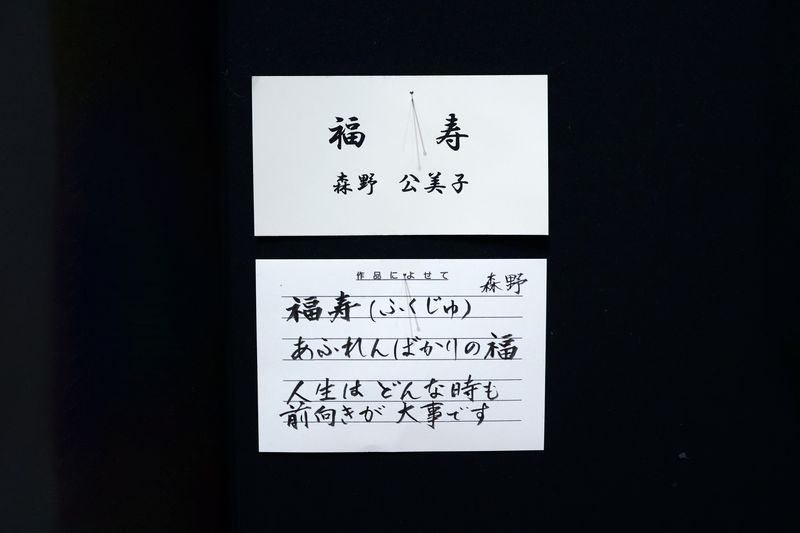 福 寿
森野 公美子
作品によせて
森野
福寿(ふくじゅ)
あふれんばかりの福
人生は どんな時も
前向きが 大事です